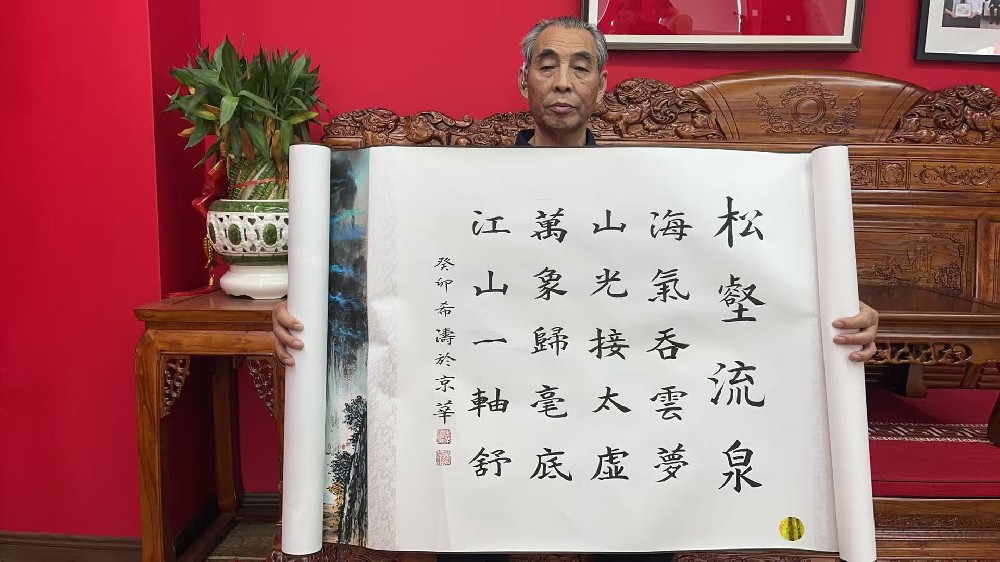 松壑流泉
海氣吞雲夢
山光接太虛
萬象歸毫底
江山一軸舒
癸卯希濤於京華